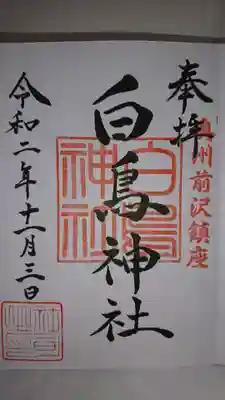 奉拝
奥州前沢鎮座
白鳥神社
白鳥神社
令和二年十一月三日